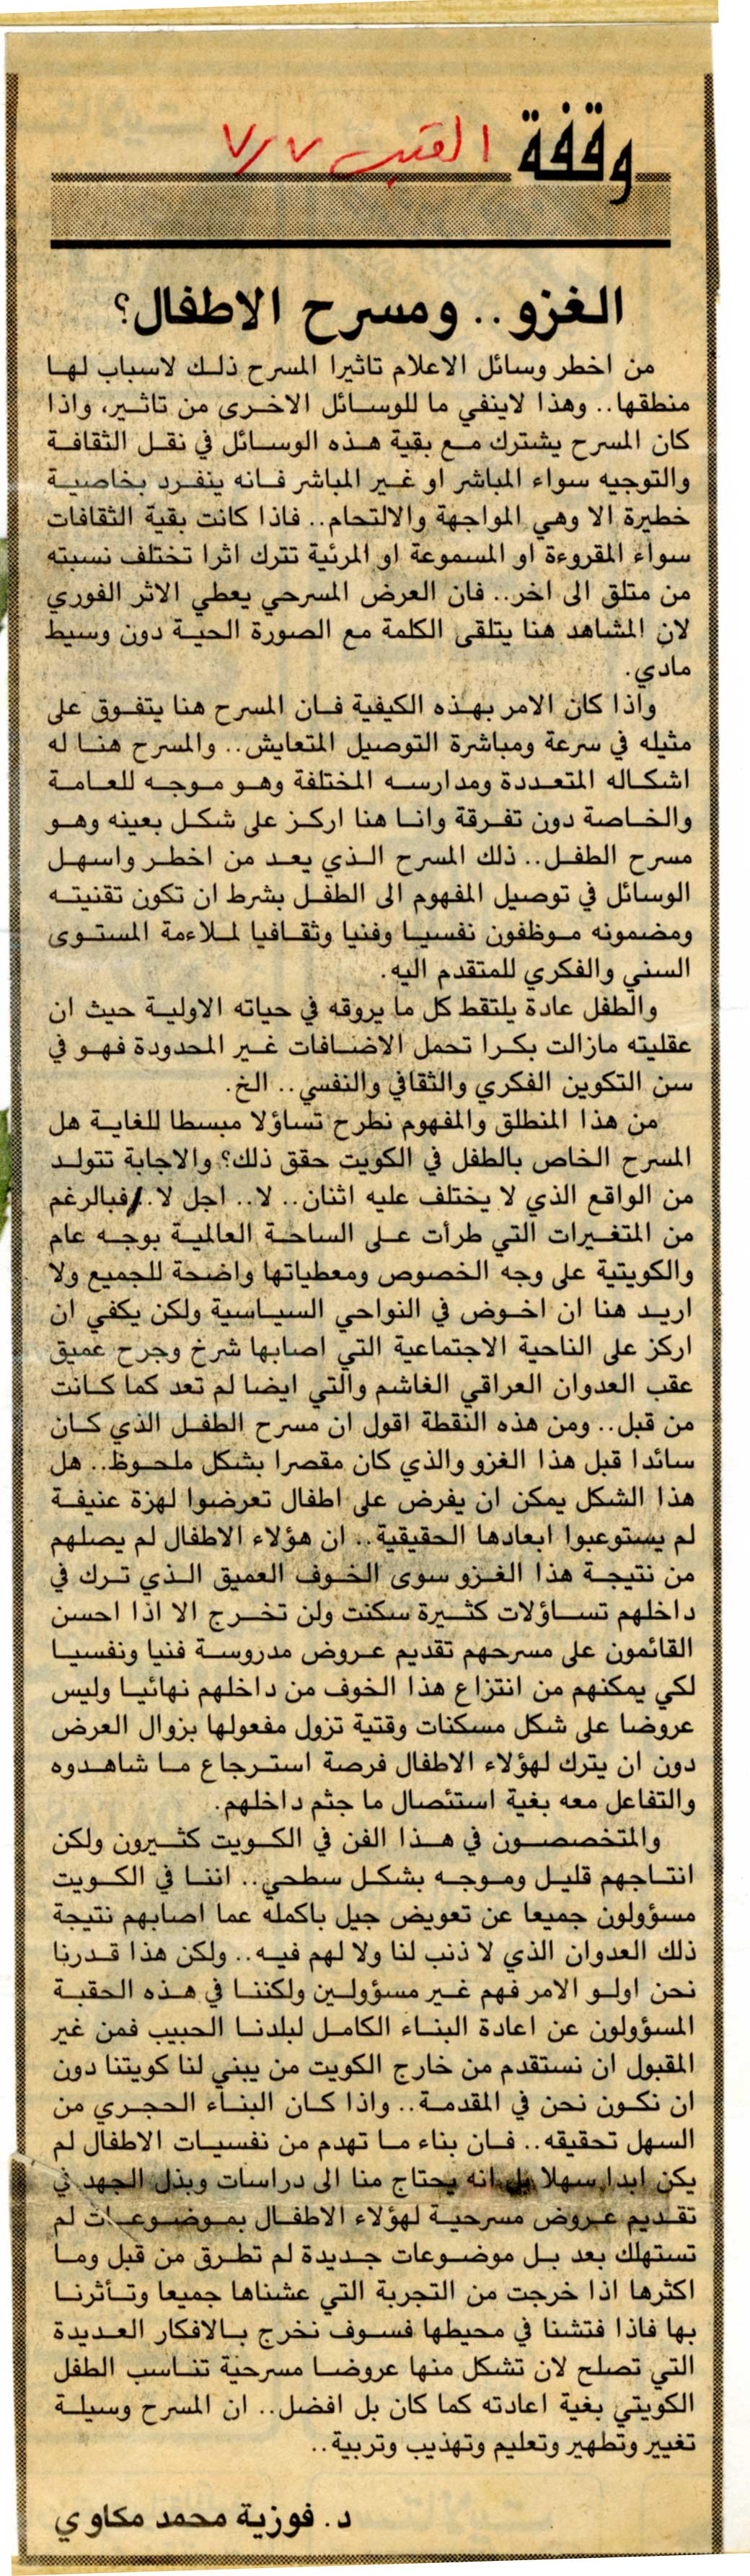 وقفة
القبس ٧/٧
الغزو.. ومسرح الاطفال؟
من اخطر وسائل الاعلام تاثيرا المسرح ذلك لاسباب لها
منطقها.. وهذا لاينفي ما للوسائل الاخرى من تاثير، واذا
كان المسرح يشترك مع بقية هذه الوسائل في نقل الثقافة
والتوجيه سواء المباشر او غير المباشر فانه ينفرد بخاصية
خطيرة الا وهي المواجهة والالتحام.. فاذا كانت بقية الثقافات
سواء المقروءة او المسموعة او المرئية تترك اثرا تختلف نسبته
من متلق الى اخر.. فان العرض المسرحي يعطي الاثر الفوري
لان المشاهد هنا يتلقى الكلمة مع الصورة الحية دون وسيط
مادي.
واذا كان الامر بهذه الكيفية فان المسرح هنا يتفوق على
مثيله في سرعة ومباشرة التوصيل المتعايش.. والمسرح هنا له
اشكاله المتعددة ومدارسه المختلفة وهو موجه للعامة
والخاصة دون تفرقة وانا هنا اركز على شكل بعينه وهو
مسرح الطفل.. ذلك المسرح الذي يعد من اخطر واسهل
الوسائل في توصيل المفهوم الى الطفل بشرط ان تكون تقنيته
ومضمونه موظفون نفسيا وفنيا وثقافيا لملاءمة المستوى
السني والفكري للمتقدم اليه.
والطفل عادة يلتقط كل ما يروقه في حياته الاولية حيث ان
عقليته مازالت بكرا تحمل الاضافات غير المحدودة فهو في
سن التكوين الفكري والثقافي والنفسي.. الخ.
من هذا المنطلق والمفهوم نطرح تساؤلا مبسطا للغاية هل
المسرح الخاص بالطفل في الكويت حقق ذلك؟ والاجابة تتولد
من الواقع الذي لا يختلف عليه اثنان.. لا.. اجل لا. فبالرغم
من المتغيرات التي طرأت على الساحة العالمية بوجه عام
والكويتية على وجه الخصوص ومعطياتها واضحة للجميع ولا
اريد هنا ان اخوض في النواحي السياسية ولكن يكفي ان
اركز على الناحية الاجتماعية التي اصابها شرخ وجرح عميق
عقب العدوان العراقي الغاشم والتي ايضا لم تعد كما كانت
من قبل.. ومن هذه النقطة اقول ان مسرح الطفل الذي كان
سائدا قبل هذا الغزو والذي كان مقصرا بشكل ملحوظ.. هل
هذا الشكل يمكن ان يفرض على اطفال تعرضوا لهزة عنيفة
لم يستوعبوا ابعادها الحقيقية.. ان هؤلاء الاطفال لم يصلهم
من نتيجة هذا الغزو سوى الخوف العميق الذي ترك في
داخلهم تساؤلات كثيرة سكنت ولن تخرج الا اذا احسن
القائمون على مسرحهم تقديم عروض مدروسة فنيا ونفسيا
لكي يمكنهم من انتزاع هذا الخوف من داخلهم نهائيا وليس
عروضا على شكل مسكنات وقتية تزول مفعولها بزوال العرض
دون ان يترك لهؤلاء الاطفال فرصة استرجاع ما شاهدوه
والتفاعل معه بغية استئصال ما جثم داخلهم.
والمتخصصون في هذا الفن في الكويت كثيرون ولكن
انتاجهم قليل وموجه بشكل سطحي.. اننا في الكويت
مسؤولون جميعا عن تعويض جيل باكمله عما اصابهم نتيجة
ذلك العدوان الذي لا ذنب لنا ولا لهم فيه.. ولكن هذا قدرنا
نحن اولو الامر فهم غير مسؤولين ولكننا في هذه الحقبة
المسؤولون عن اعادة البناء الكامل لبلدنا الحبيب فمن غير
المقبول ان نستقدم من خارج الكويت من يبني لنا كويتنا دون
ان نكون نحن في المقدمة.. واذا كان البناء الحجري من
السهل تحقيقه.. فان بناء ما تهدم من نفسيات الاطفال لم
يكن ابدا سهلا بل انه يحتاج منا الى دراسات وبذل الجهد في
تقديم عروض مسرحية لهؤلاء الاطفال بموضوعات لم
تستهلك بعد بل موضوعات جديدة لم تطرق من قبل وما
اكثرها اذا خرجت من التجربة التي عشناها جميعا وتأثرنا
بها فاذا فتشنا في محيطها فسوف نخرج بالافكار العديدة
التي تصلح لان تشكل منها عروضا مسرحية تناسب الطفل
الكويتي بغية اعادته كما كان بل افضل.. ان المسرح وسيلة
تغيير وتطهير وتعليم وتهذيب وتربية..
د. فوزية محمد مكاوي